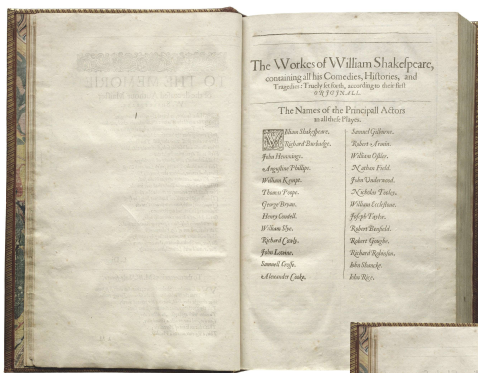 TO THE MEMORIE
The Workes of William Shakeſpeare,
containing all his Comedies, Hiſtories, and
Tragedies: Truely ſet forth, according to their firſt
ORIGINALL.
The Names of the Principall Actors
in all theſe Playes.
William Shakeſpeare.
Richard Burbadge.
John Hemmings.
Auguſtine Phillips.
William Kempt.
Thomas Poope.
George Bryan.
Henry Condell.
William Slye.
Richard Cowly.
John Lowine.
Samuell Croſſe.
Alexander Cooke.
Samuel Gilburne.
Robert Armin.
William Oſtler.
Nathan Field.
John Underwood.
Nicholas Tooley.
William Eccleſtone.
Joſeph Taylor.
Robert Benfield.
Robert Goughe.
Richard Robinſon.
Iohn Shancke.
Iohn Rice.